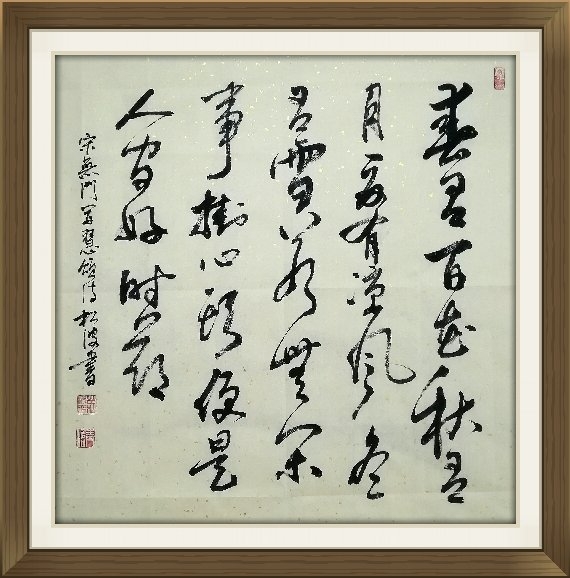 春有百花秋有
月夏有凉风冬
有雪若無闲
事掛心头便是
人间好时节
宋無門慧诗松波書